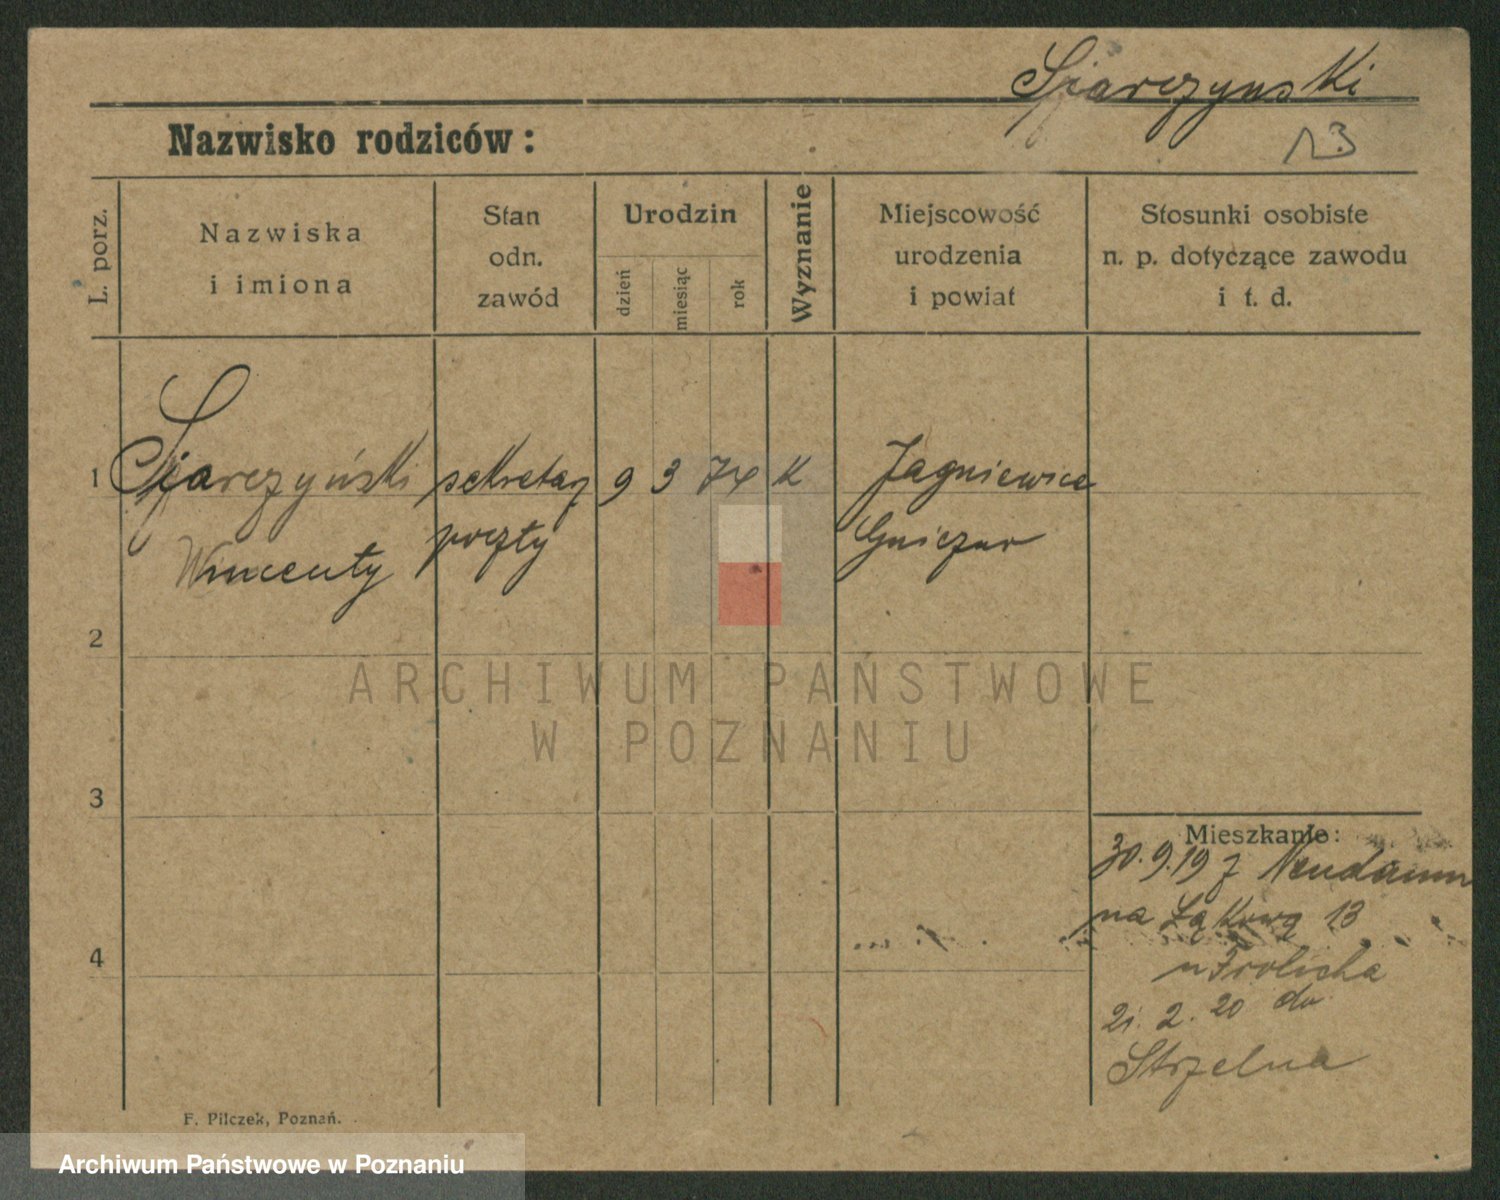 Sparczynski
13
Nazwisko rodziców:
L. porz.
Nazwiska
i imiona
Stan
odn.
zawód
Urodzin
dzień
miesiąc
rok
Wyznanie
Miejscowość
urodzenia
i powiat
Stosunki osobiste
n. p. dotyczące zawodu
i t. d.
1
Sparczyński
Wincenty
sekretarz
poczty
9 3 74 K
Jagniewice
2
ARCHIWUM PAŃSTWOWE
W POZNANIU
3
Mieszkanie:
30.9.19 z Neudamm
na Łąkową 13
u Frolicha
4
21. 2. 20 do
Strzelna
F. Pilczek, Poznań.
Archiwum Państwowe w Poznaniu